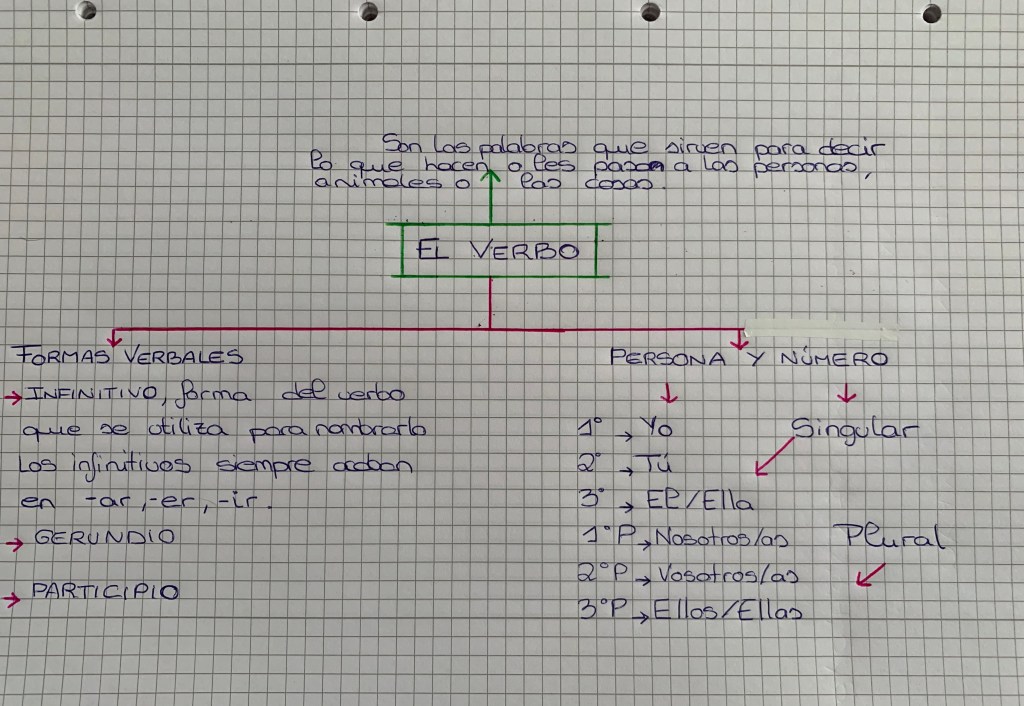 Son las palabras que sirven para decir
lo que hacen o les pasan a las personas,
animales o las cosas.
EL VERBO
FORMAS VERBALES
→ INFINITIVO, forma del verbo
que se utiliza para nombrarlo
Los infinitivos siempre acaban
en -ar, -er, -ir.
→ GERUNDIO
→ PARTICIPIO
PERSONA Y NÚMERO
1° → Yo
Singular
2° → Tú
3° → El/Ella
1°P → Nosotros/as
Plural
2°P → Vosotros/as
3°P → Ellos/Ellas